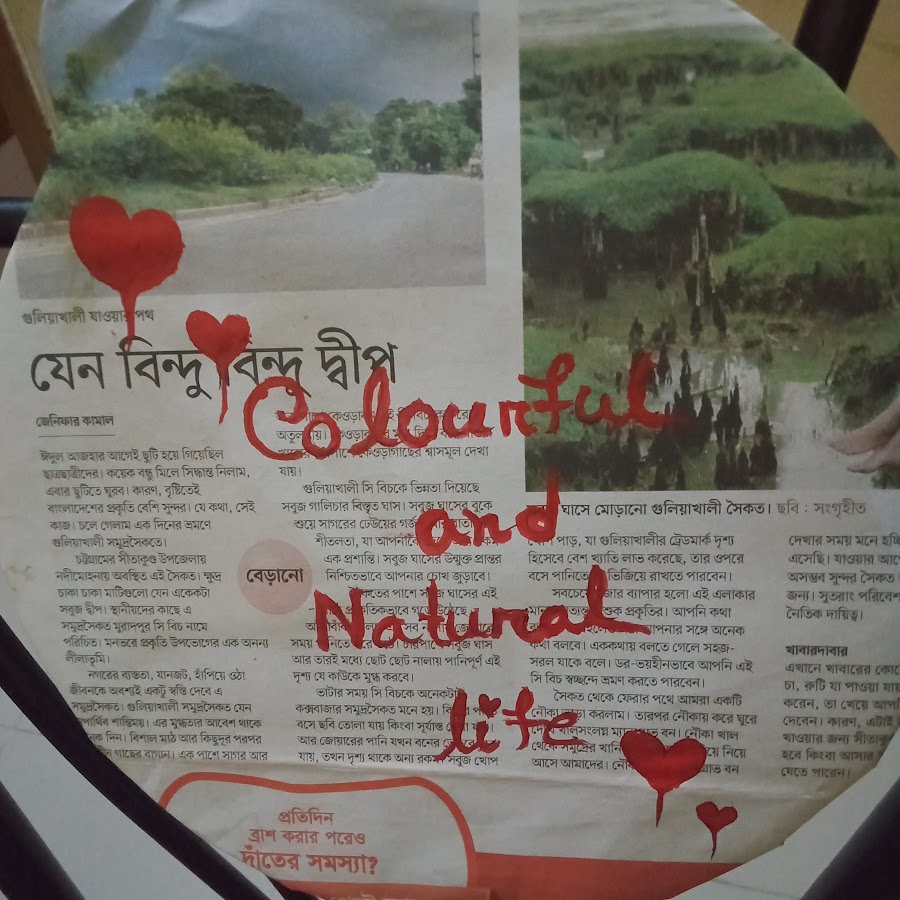 গুলিয়াখালী যাওয়ার পথ
যেন বিন্দু বিন্দু দ্বীপ
জেনিফার কামাল
ঈদুল আজহার আগেই ছুটি হয়ে গিয়েছিল
ছাত্রছাত্রীদের। কয়েক বন্ধু মিলে সিদ্ধান্ত নিলাম,
এবার ছুটিতে ঘুরব। কারণ, বৃষ্টিতেই
বাংলাদেশের প্রকৃতি বেশি সুন্দর। যে কথা, সেই
কাজ। চলে গেলাম এক দিনের ভ্রমণে
গুলিয়াখালী সমুদ্রসৈকতে।
চট্টগ্রামের সীতাকুণ্ড উপজেলায়
নদীমোহনায় অবস্থিত এই সৈকত। ক্ষুদ্র
চাকা চাকা মাটিগুলো যেন একেকটা
সবুজ দ্বীপ। স্থানীয়দের কাছে এ
সমুদ্রসৈকত মুরাদপুর সি বিচ নামে
পরিচিত। মনভরে প্রকৃতি উপভোগের এক অনন্য
লীলাভূমি।
নগরের ব্যস্ততা, যানজট, হাঁপিয়ে ওঠা
জীবনকে অবশ্যই একটু স্বস্তি দেবে এ
সমুদ্রসৈকত। গুলিয়াখালী সমুদ্রসৈকত যেন
শান্তিময়। এর মুগ্ধতার আবেশ থাকে
দিন। বিশাল মাঠ আর কিছুদূর পরপর
গাছের বাগান। এক পাশে সাগর আর
বেড়ানো
শ্বাসমূল দেখা
যায়।
গুলিয়াখালী সি বিচকে ভিন্নতা দিয়েছে
সবুজ গালিচার বিস্তৃত ঘাস। সবুজ ঘাসের বুকে
শুয়ে সাগরের ঢেউয়ের
শীতলতা, যা
এক প্রশান্তি। সবুজ ঘাসের উন্মুক্ত প্রান্তর
নিশ্চিতভাবে আপনার চোখ জুড়াবে।
পাশে সবুজ ঘাসের এই
সময়
আর তারই মধ্যে ছোট ছোট নালায় পানিপূর্ণ এই
দৃশ্য যে কাউকে মুগ্ধ করবে।
ভাটার সময় সি বিচকে অনেকটা
কক্সবাজার সমুদ্রসৈকত মনে হয়।
বসে ছবি তোলা যায় কিংবা সূর্যাস্ত
আর জোয়ারের পানি যখন বনের
যায়, তখন দৃশ্য থাকে অন্য রকম। সবুজ খোপ
ঘাসে মোড়ানো গুলিয়াখালী সৈকত। ছবি : সংগৃহীত
পাড়, যা গুলিয়াখালীর ট্রেডমার্ক দৃশ্য
হিসেবে বেশ খ্যাতি লাভ করেছে, তার ওপরে
বসে পানিতে ভিজিয়ে রাখতে পারবেন।
ব্যাপার হলো এই এলাকার
প্রকৃতির। আপনি কথা
আপনার সঙ্গে অনেক
কথা বলবে। এককথায় বলতে গেলে সহজ-
সরল যাকে বলে। ডর-ভয়হীনভাবে আপনি এই
সি বিচ স্বচ্ছন্দে ভ্রমণ করতে পারবেন।
সৈকত থেকে ফেরার পথে আমরা একটি
নৌকা ভাড়া করলাম। তারপর নৌকায় করে ঘুরে
বন। নৌকা খাল
থেকে সমুদ্রের নিয়ে
আসে আমাদের। বন
দেখার সময় মনে
এসেছি। যাওয়ার
অসম্ভব সুন্দর সৈকত
জন্য। সুতরাং
নৈতিক দায়িত্ব।
খাবারদাবার
এখানে খাবারের
চা, রুটি যা পাওয়া
করেন, তা খেয়ে
দেবেন। কারণ, এটাই
খাওয়ার জন্য
হবে কিংবা আসার
যেতে পারেন।
Colourful
and
Natural
life
প্রতিদিন
ব্রাশ করার পরেও
দাঁতের সমস্যা?